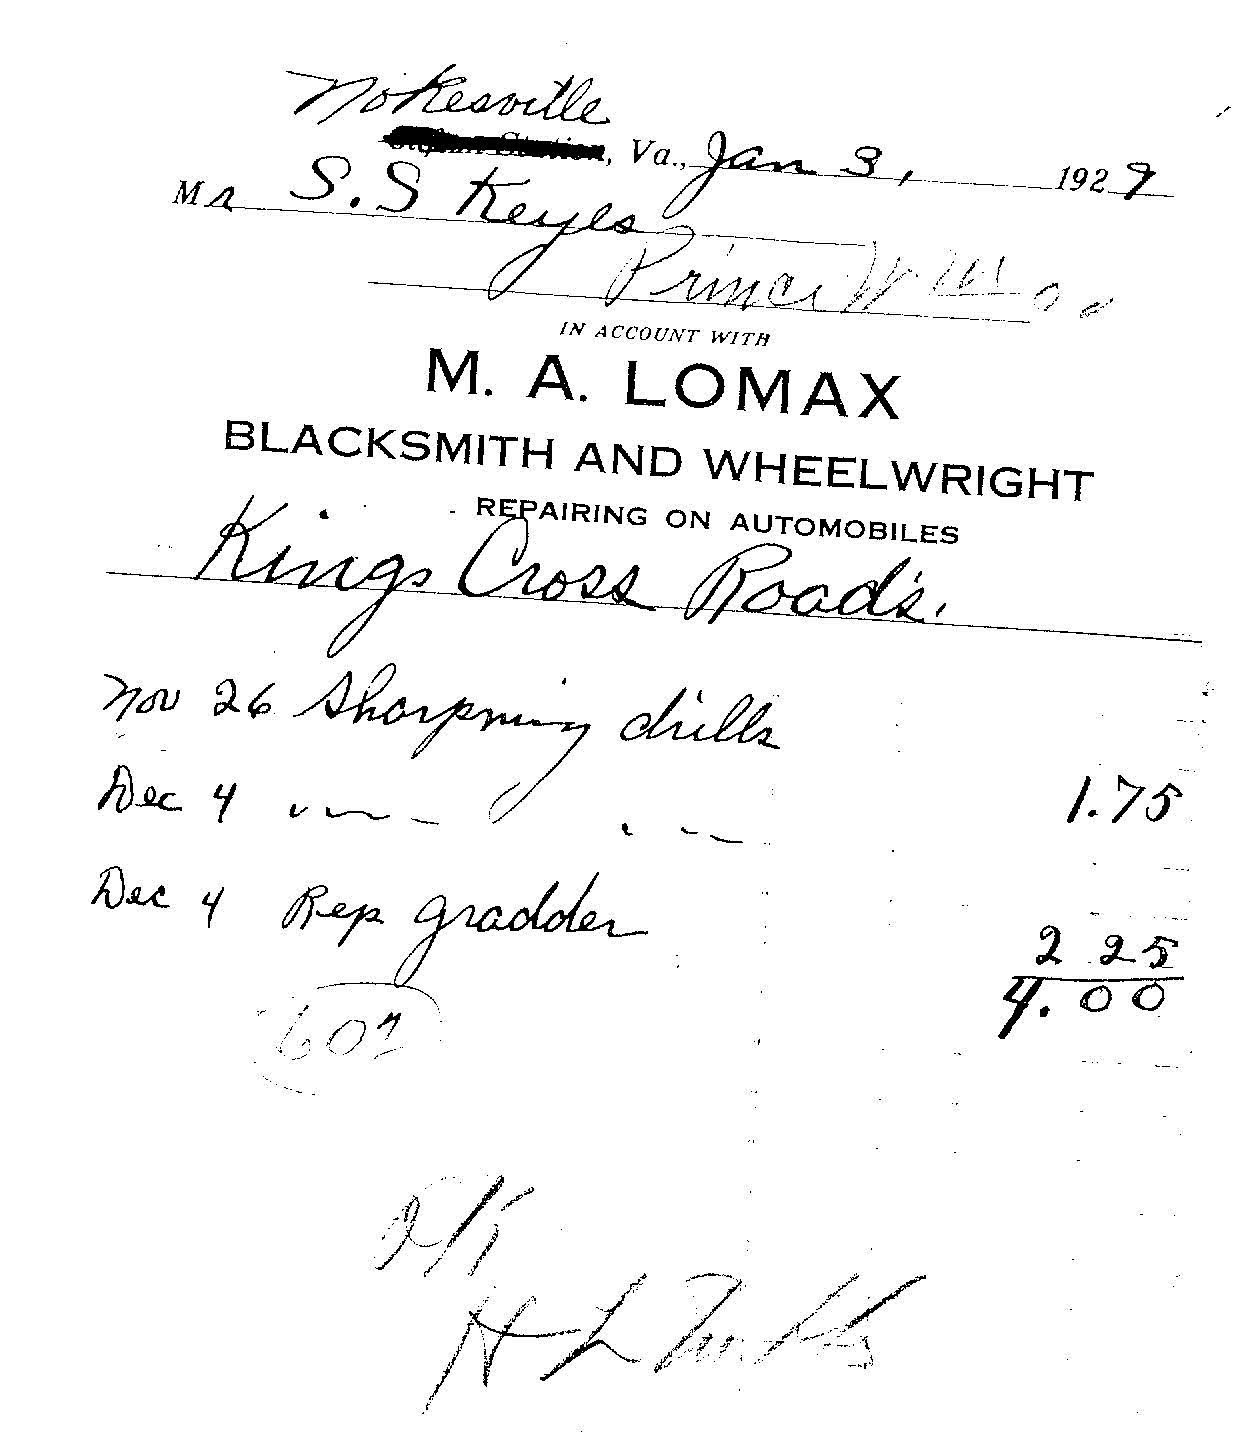 Nokesville
Va., Jan 3, 1929
Mr S. S Keyes
Prince Wm Co
IN ACCOUNT WITH
M. A. LOMAX
BLACKSMITH AND WHEELWRIGHT
REPAIRING ON AUTOMOBILES
Kings Cross Roads.
Nov 26 Sharpning drills
Dec 4 " " 1.75
Dec 4 Rep gradder 2 25
4.00
607
OK
H L